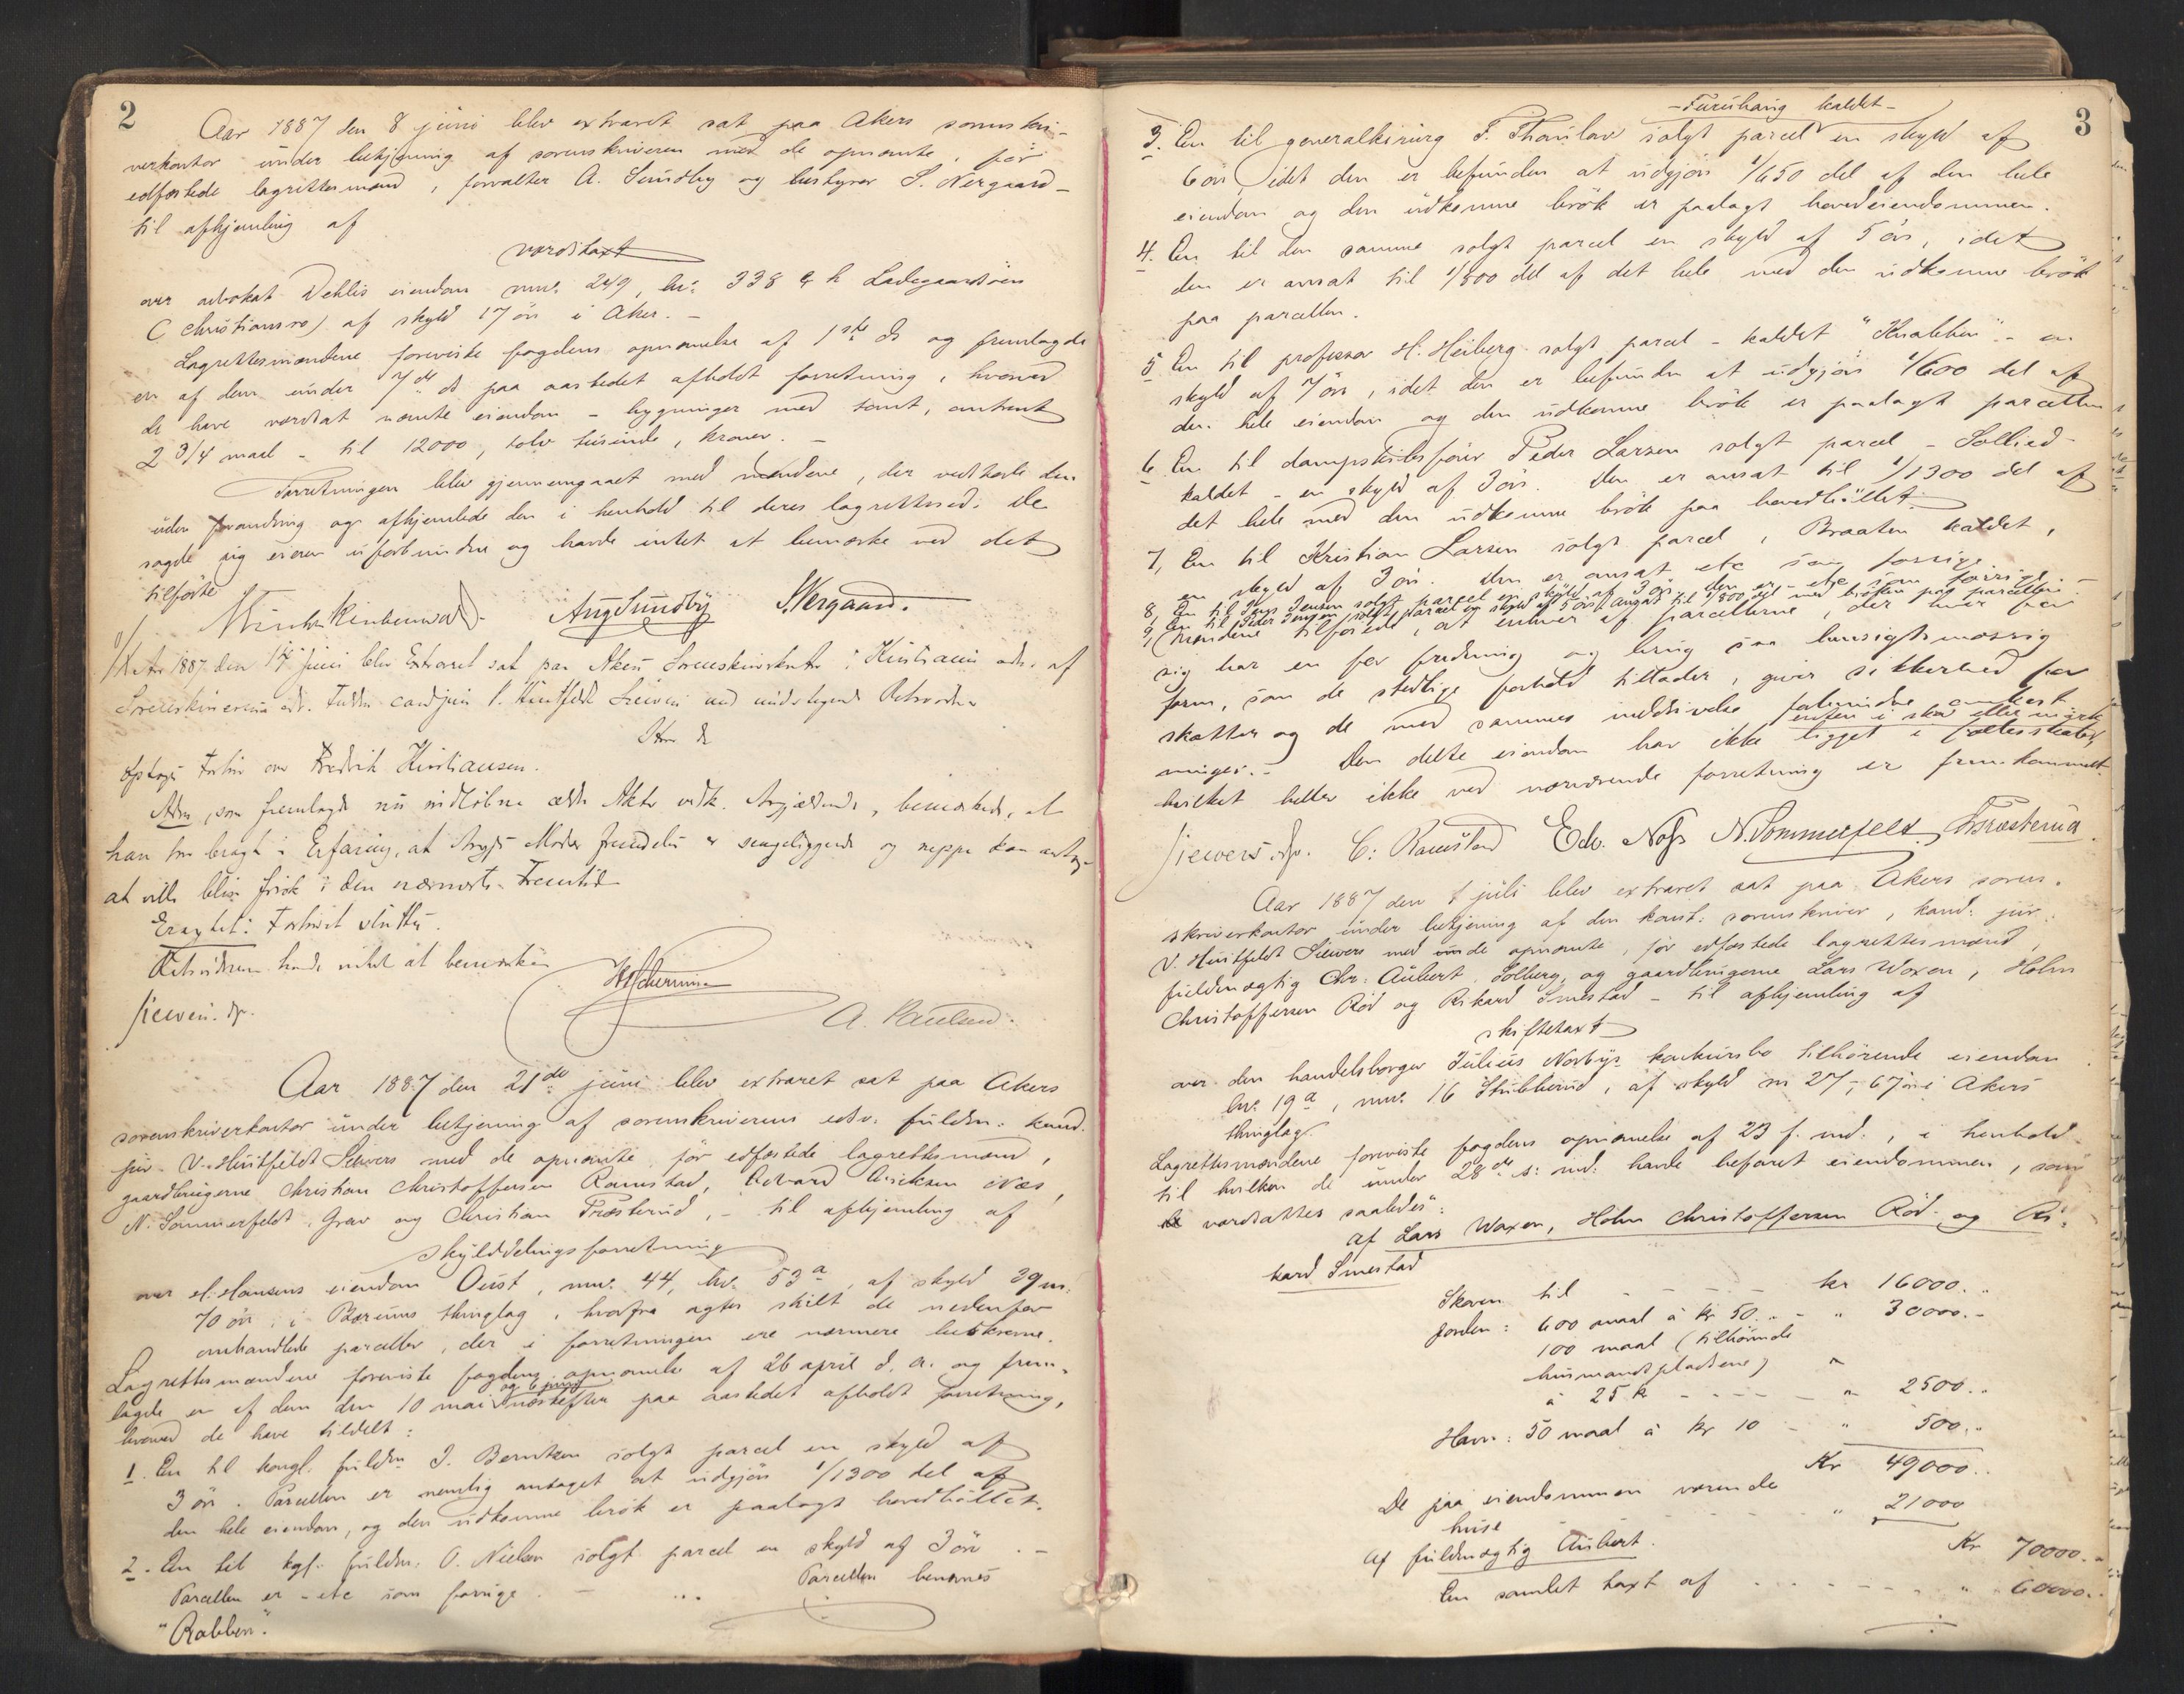 2
Aar 1887 den 8 juni blev extraret sat paa Akers sorenskri-
verkontor under betjening af sorenskriveren med de opnævnte, før
edfæstede lagrettesmænd, forvalter A. Sundby og bestyrer S. Nergaard -
til afhjemling af
værditaxt
over advokat Dehlis eiendom mnr. 249, lnr. 338 q h Ladegaardsöen
(Christiansro) af skyld 17 öre i Aker. -
Lagrettesmændene foreviste fogdens opnævnelse af 1ste ds og fremlagde
en af dem under 7de ds paa aastedet afholdt forretning, hvorved
de have værdsat nævnte eiendom - bygninger med tomt, omtrent
2 3/4 maal - til 12000, tolv tusinde, kroner. -
Forretningen blev gjennemgaaet med mændene, der vedtoge den
uden forandring og afhjemlede den i henhold til deres lagrettesed. De
sagde sig eieren uforbundne og havde intet at bemærke ved det
tilførte
Aug Sundby S. Nergaard.
Aar 1887 den juni blev Extraret sat paa Akers Sorenskriverkontor i Kristiania adm. af
Sorenskriverens edv. Fuldm. cand. jur. V. Huitfeldt Siewers med undertegnede Retsvidner
Hvor da
optoges Forhør over Fredrik Kristiansen.
Adm, som fremlagde nu indløbne ældre Akter vedk. Angjældende, bemærkede, at
han har bragt i Erfaring, at Moder fremdeles er sengeliggende og neppe kan antages
at ville blive frisk i den nærmeste Fremtid
Eragtet: Forhøret sluttes.
Retsvidnerne havde intet at bemærke
Siewers. A. Paulsen.
Aar 1887 den 21de juni blev extraret sat paa Akers
sorenskriverkontor under betjening af sorenskriverens edsv. fuldm. kand.
jur. V. Huitfeldt Siewers med de opnævnte før edfæstede lagrettesmænd,
gaardbrugerne Christian Christoffersen Ramstad, Edvard Eriksen Næs,
N. Sommerfeldt, Grav og Christian Fræsterud, - til afhjemling af
skylddelingsforretning
over H. Hansens eiendom Oust, mnr. 44, lnr. 53a, af skyld 29 m.
70 öre i Bærums thinglag, hvorfra agtes skilt de nedenfor
omhandlede parceller, der i forretningen ere nærmere beskrevne.
Lagrettesmændene foreviste fogdens opnævnelse af 26 april d. a. og frem-
og 6 juni
lagde en af dem den 10 mai næstefter paa aastedet afholdt forretning,
hvorved de have tildelt:
1. En til kongl. fuldm. J. Berntzen solgt parcel en skyld af
3 öre. Parcellen er nemlig antaget at udgjöre 1/1300 del af
den hele eiendom, og den udkomne brök er paalagt hovedbøllet.
2. En til kgl. fuldm. O. Nielsen solgt parcel en skyld af 3 öre. -
Parcellen er - etc som forrige. - Parcellen benævnes
"Rabben".
3
- Furuhaug kaldet -
3. En til generalkirurg F. Thaulow solgt parcel en skyld af
6 öre, idet den er befunden at udgjöre 1/650 del af den hele
eiendom og den udkomne brök er paalagt hovedeiendommen.
4. En til den samme solgt parcel en skyld af 5 öre, idet
den er ansat til 1/800 del af det hele med den udkomne brök
paa parcellen.
5. En til professor H. Heiberg solgt parcel - kaldet "Knabben" - en
skyld af 7 öre, idet den er befunden at udgjöre 1/600 del af
den hele eiendom og den udkomne brök er paalagt parcellen
6. En til dampskibsförer Peder Larsen solgt parcel - Sollied -
kaldet - en skyld af 3 öre. Den er ansat til 1/1300 del af
det hele med den udkomne brök paa hovedbøllet.
7, En til Kristian Larsen solgt parcel, Braaten kaldet,
en skyld af 3 öre. Den er ansat etc som forrige.
8, En til Jens Jensen solgt parcel en skyld af 3 öre, den er - etc som forrige. -
9, En til Peder Jensen solgt parcel en skyld af 5 öre ansat til 1/800 del med brøken paa parcellen. -
Mændene tilföiede, at enhver af parcellerne, der hver for
sig har en for fredning og brug saa hensigtsmæssig
form, som de stedlige forhold tillader, giver sikkerhed for
skatter og de med sammes inddrivelse forbundne omkost-
enten i skov eller mark
ninger. - Den delte eiendom har ikke ligget i fællesskab,
hvilket heller ikke ved nærværende forretning er fremkommet.
Siewers. C. Ramstad Edv. Næs N. Sommerfeldt Fræsterud
Aar 1887 den 1 juli blev extraret sat paa Akers soren-
skriverkontor under betjening af den konst. sorenskriver, kand. jur.
V. Huitfeldt Siewers med de opnævnte, før edfæstede lagrettesmænd,
fuldmægtig Chr. Aubert, Solberg, og gaardbrugerne Lars Woxen, Holm
Christoffersen Röd og Rikard Smestad - til afhjemling af
skiftetaxt
over den handelsborger Julius Norbys konkursbo tilhörende eiendom
lnr. 19a, mnr. 16 Stubberud, af skyld m 27,-67 öre i Akers
thinglag.
Lagrettesmændene foreviste fogdens opnævnelse af 23 f. md., i henhold
til hvilken de under 28de s. md. havde befaret eiendommen, som
værdsattes saaledes:
af Lars Woxen, Holm Christoffersen Röd og Ri-
kard Smestad
Skoven til - - - - - kr 16000..
Jorden: 600 maal à kr 50.. - " 30000.-
100 maal (tilhörende
husmandspladsene)
à 25 kr - - - - - " 2500..
Havn: 50 maal à kr 10 - " 500..
Kr 49000..
De paa eiendommen værende
huse - - - - - " 21000
Kr 70000..
Af fuldmægtig Aubert.
En samlet taxt af - - - - - " 60000..